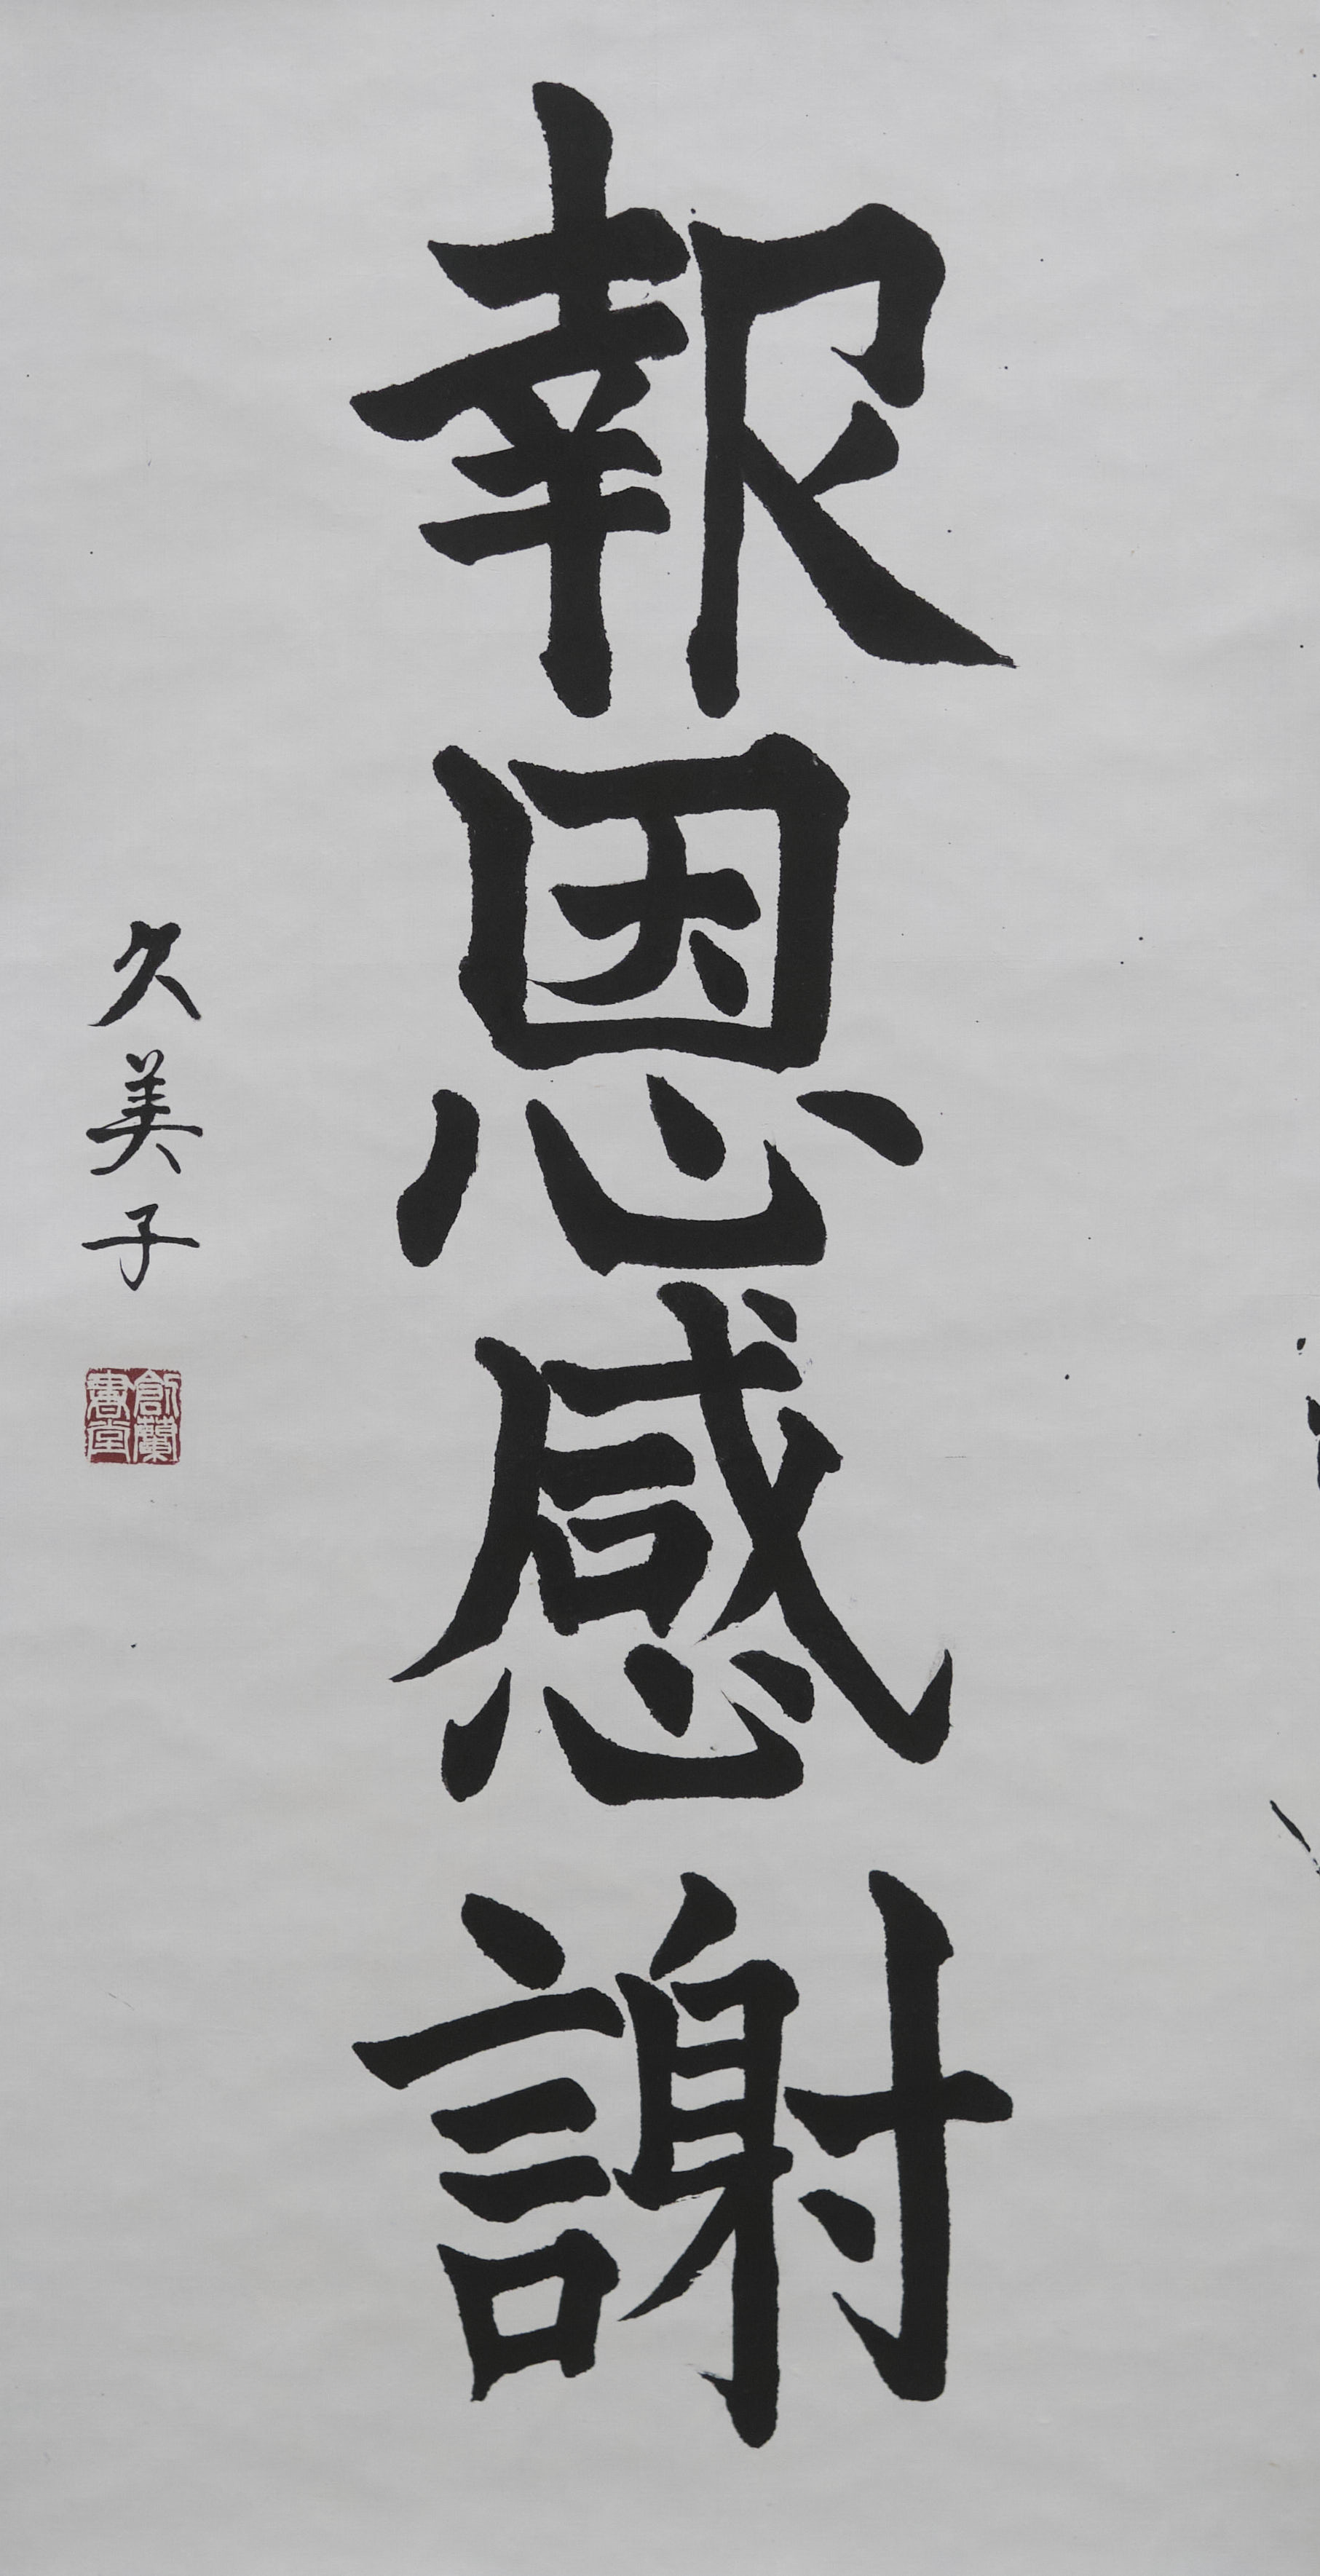 報恩感謝
久美子
創蘭書堂